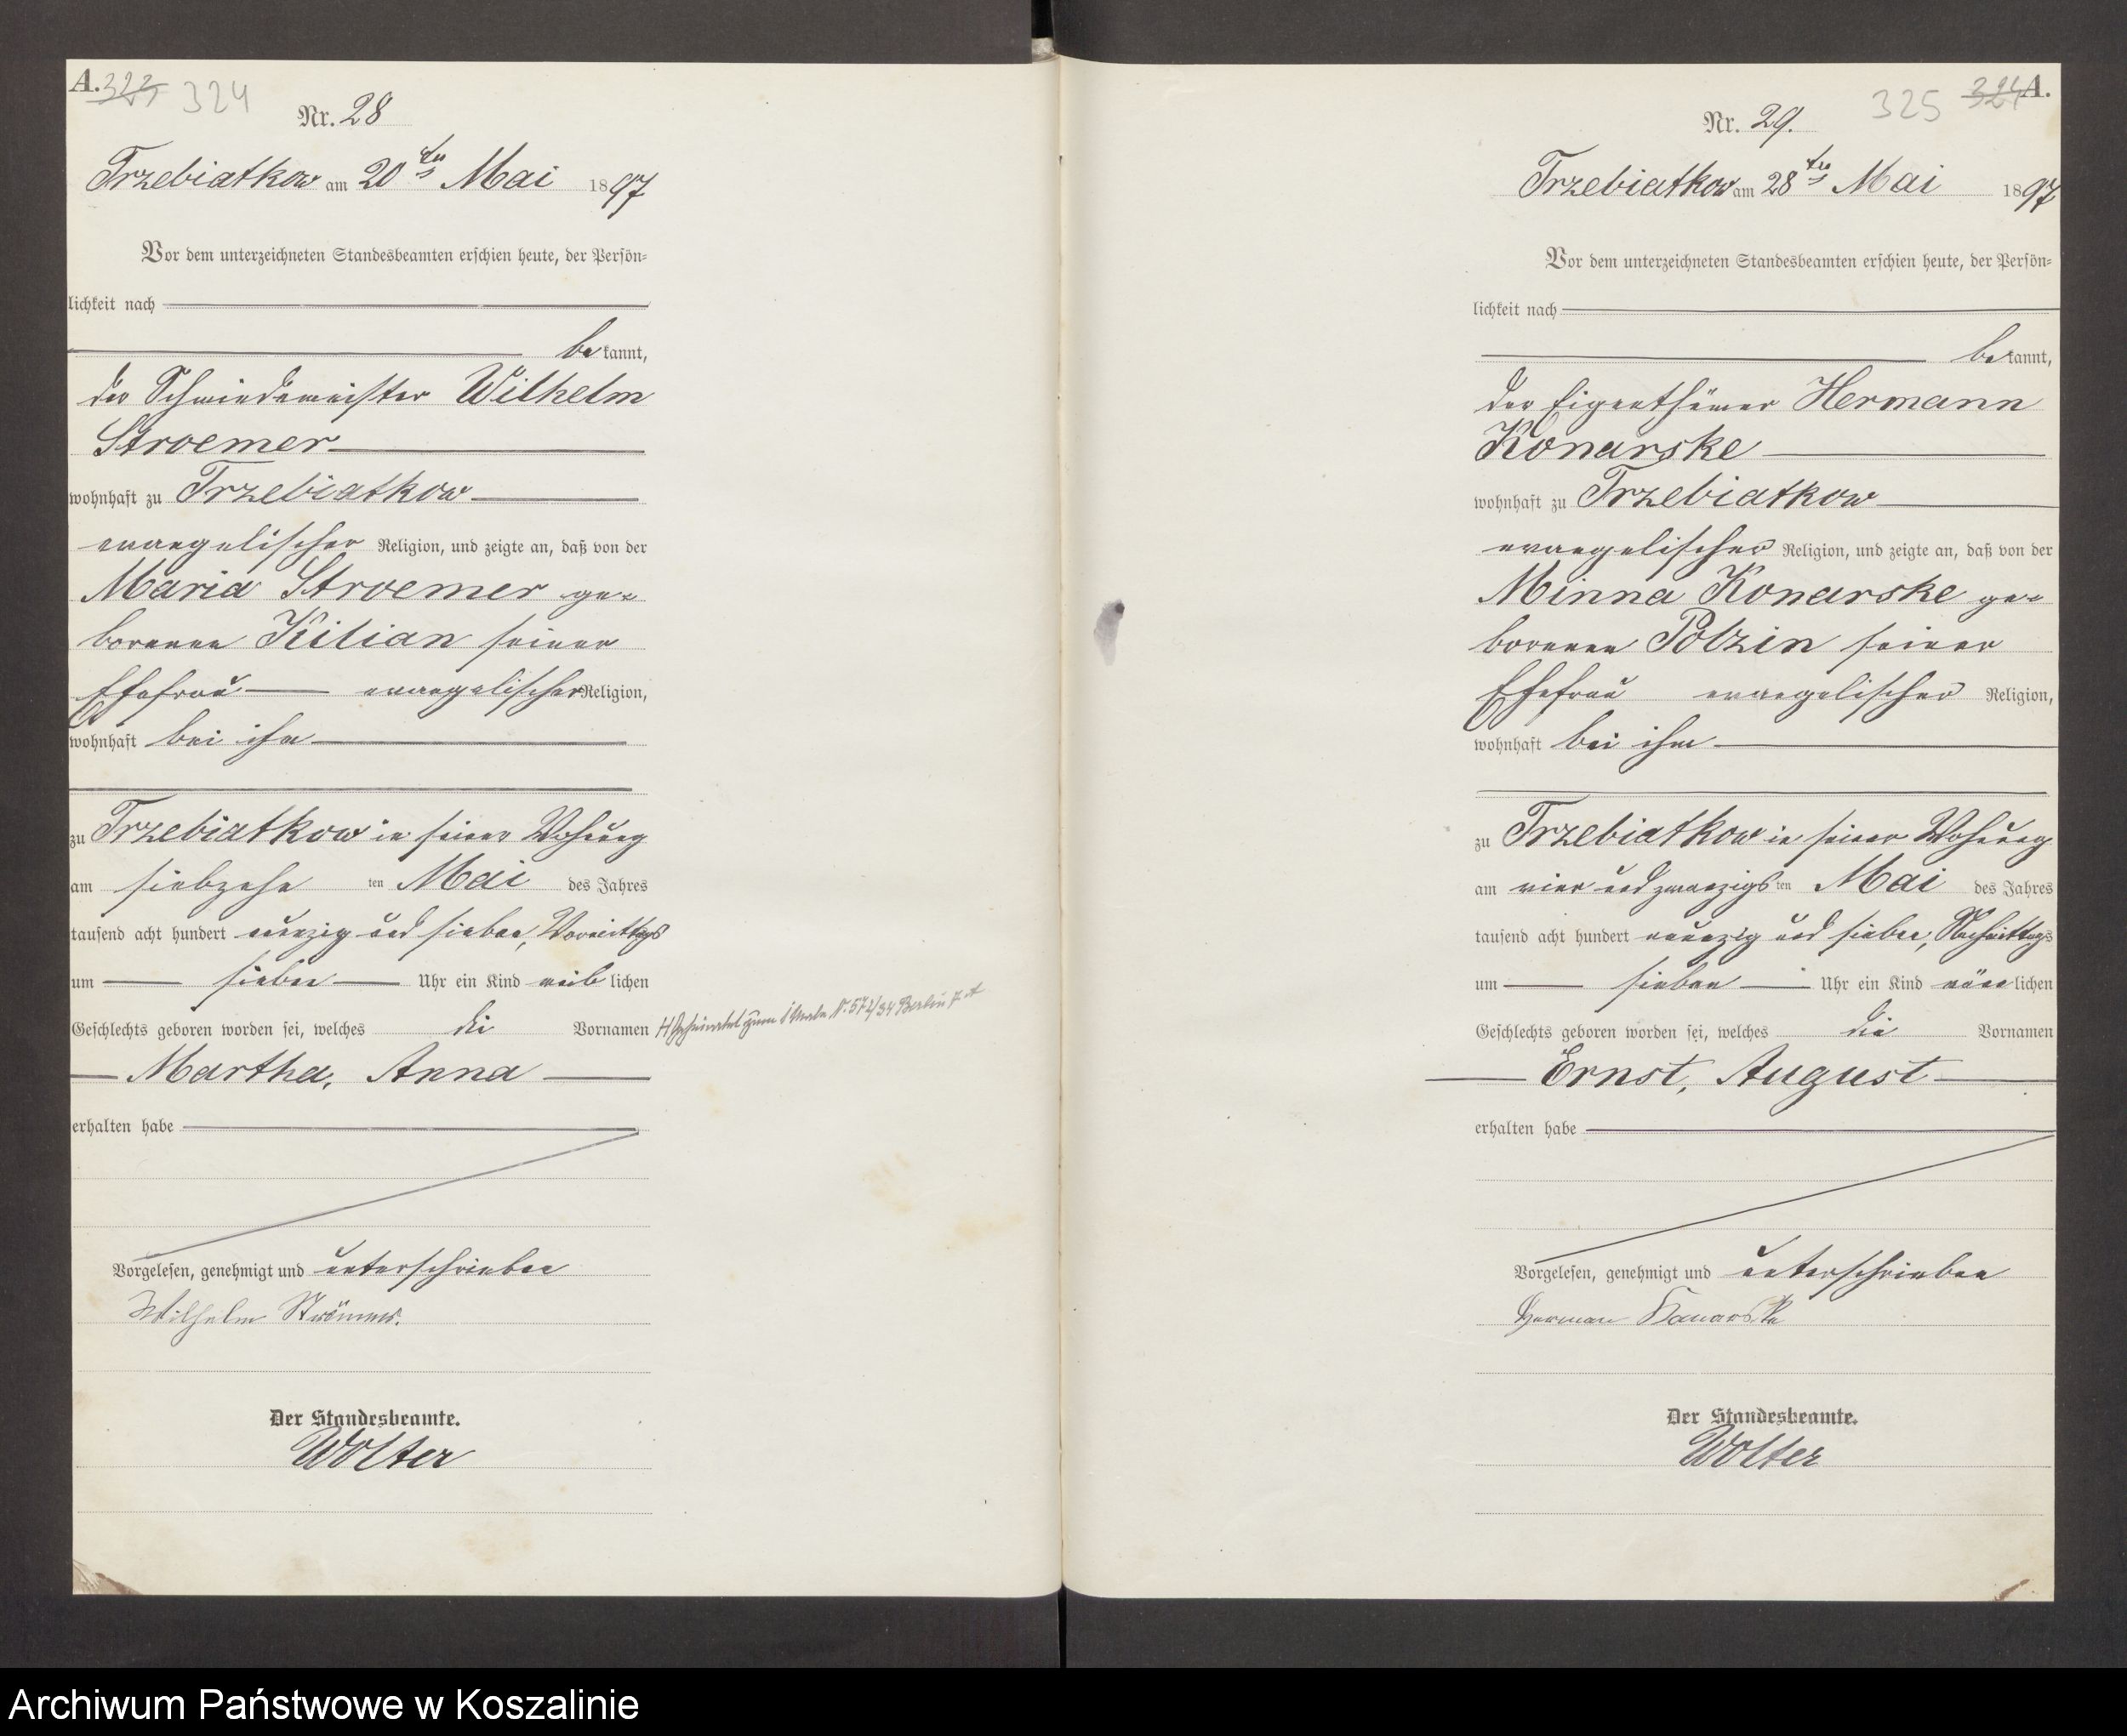 A. 323 324
Nr. 28
Trzebiatkow am 20ten Mai 1897
Vor dem unterzeichneten Standesbeamten erschien heute, der Persön-
lichkeit nach
be kannt,
der Schmiedemeister Wilhelm
Stroemer
wohnhaft zu Trzebiatkow
evangelischer Religion, und zeigte an, daß von der
Maria Stroemer ge-
borenen Kilian seiner
Ehefrau evangelischer Religion,
wohnhaft bei ihm
zu Trzebiatkow in seiner Wohnung
am siebzehn ten Mai des Jahres
tausend acht hundert neunzig und sieben, Vormittags
um sieben Uhr ein Kind weib lichen
Geschlechts geboren worden sei, welches die Vornamen
Martha, Anna
erhalten habe
Vorgelesen, genehmigt und unterschrieben
Wilhelm Strömer.
Der Standesbeamte.
Wolter
zum 1. Male Nr. 572/34 Berlin 7
325 324 A.
Nr. 29.
Trzebiatkow am 28ten Mai 1897
Vor dem unterzeichneten Standesbeamten erschien heute, der Persön-
lichkeit nach
be kannt,
der Eigenthümer Hermann
Konarske
wohnhaft zu Trzebiatkow
evangelischer Religion, und zeigte an, daß von der
Minna Konarske ge-
borenen Polzin seiner
Ehefrau evangelischer Religion,
wohnhaft bei ihm
zu Trzebiatkow in seiner Wohnung
am vier und zwanzigs ten Mai des Jahres
tausend acht hundert neunzig und sieben, Nachmittags
um sieben Uhr ein Kind männ lichen
Geschlechts geboren worden sei, welches die Vornamen
Ernst, August
erhalten habe
Vorgelesen, genehmigt und unterschrieben
Herman Konarske
Der Standesbeamte.
Wolter
Archiwum Państwowe w Koszalinie